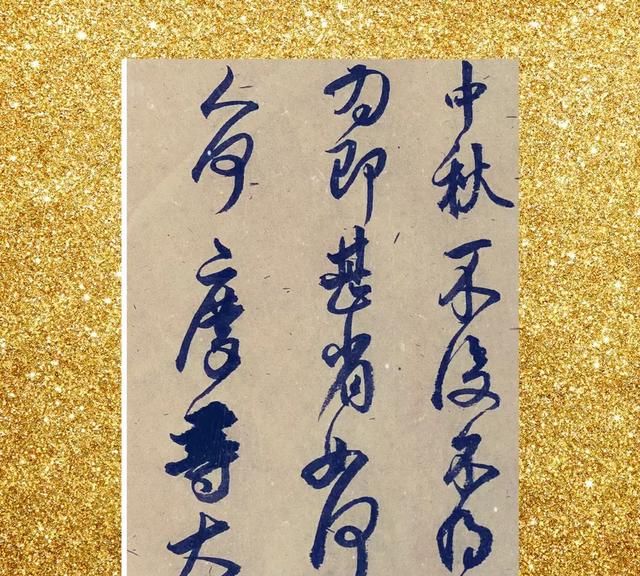 中秋不復不得
為即甚省如何
人何慶等大